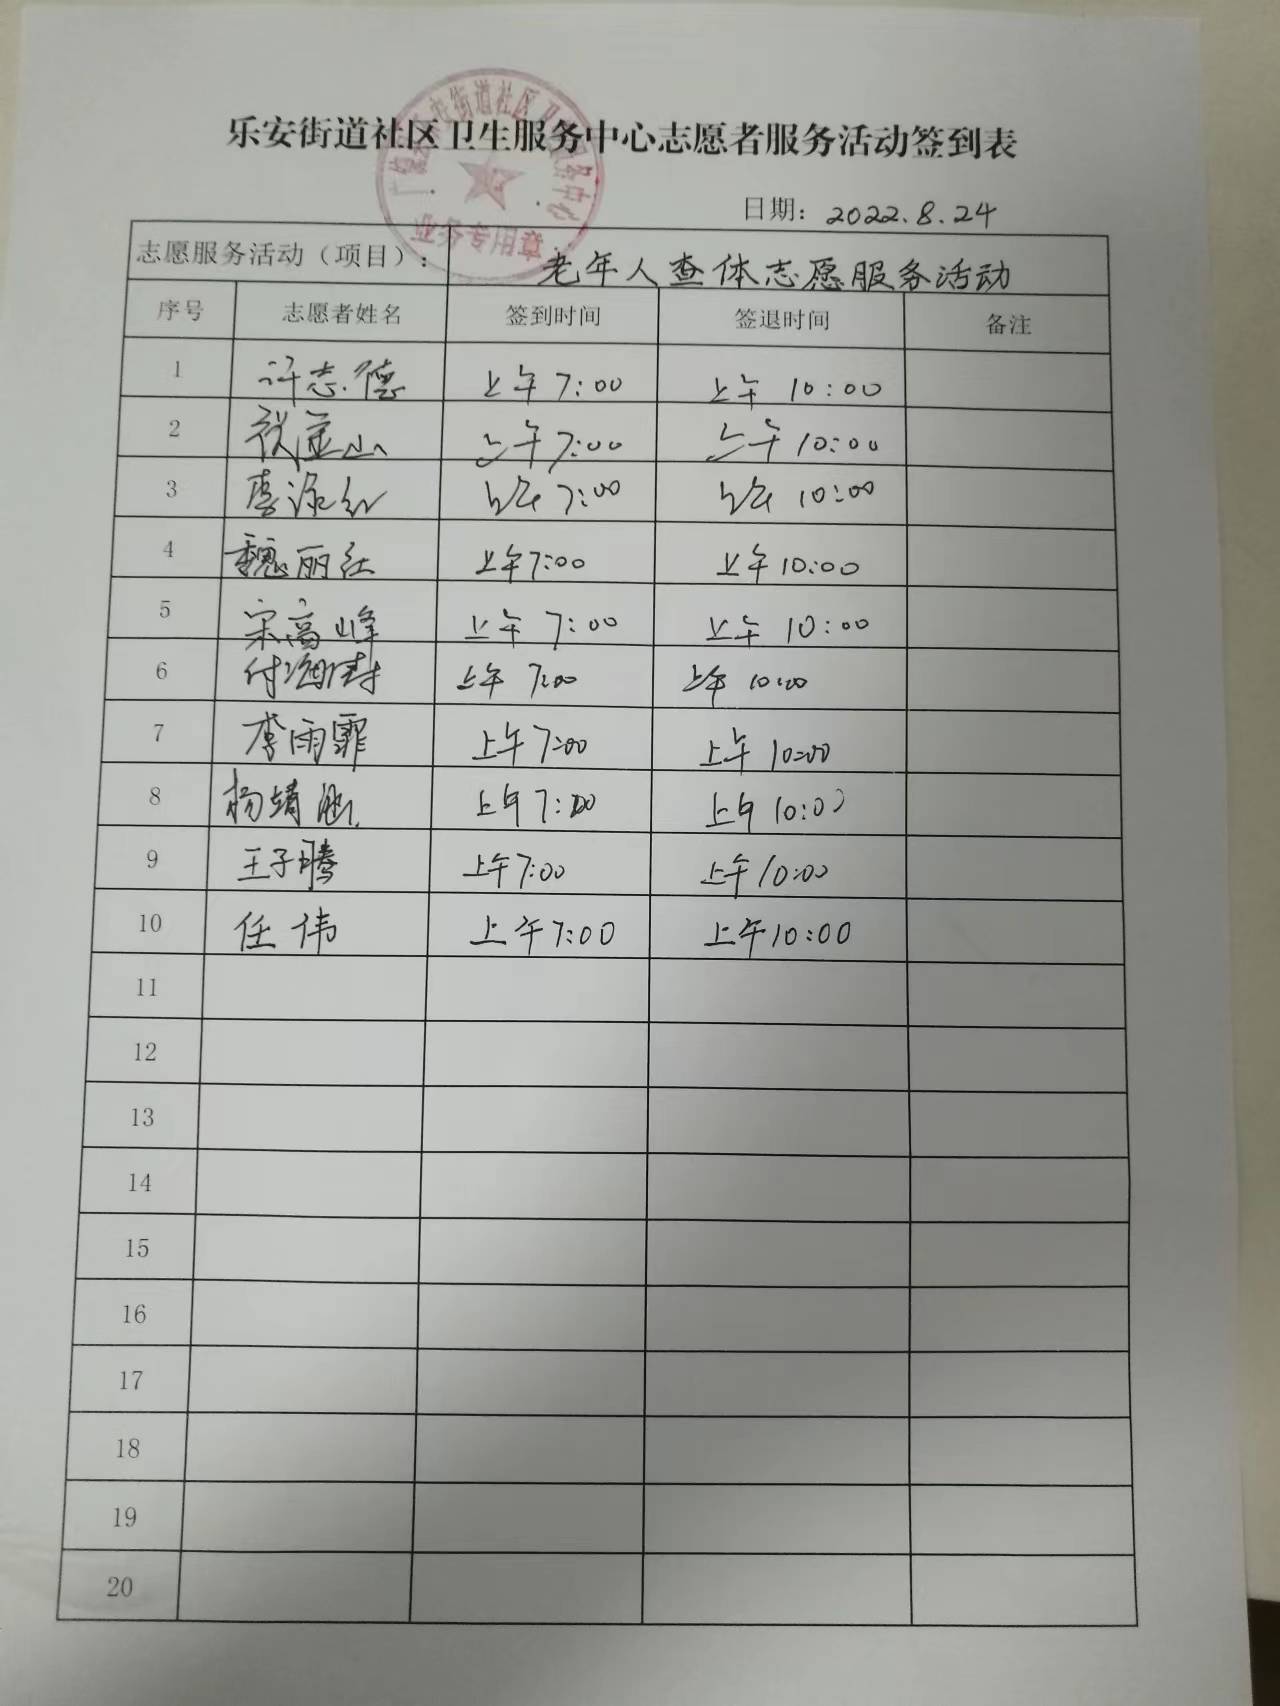 乐安街道社区卫生服务中心志愿者服务活动签到表
日期：2022.8.24
志愿服务活动（项目）： 老年人查体志愿服务活动
序号 志愿者姓名 签到时间 签退时间 备注
1 许志德 上午7:00 上午10:00
2 上午7:00 上午10:00
3 李 上午7:00 上午10:00
4 魏丽红 上午7:00 上午10:00
5 宋高峰 上午7:00 上午10:00
6 付海涛 上午7:00 上午10:00
7 李雨霏 上午7:00 上午10:00
8 杨婧 上午7:00 上午10:00
9 王子腾 上午7:00 上午10:00
10 任伟 上午7:00 上午10:00
11
12
13
14
15
16
17
18
19
20
业务专用章